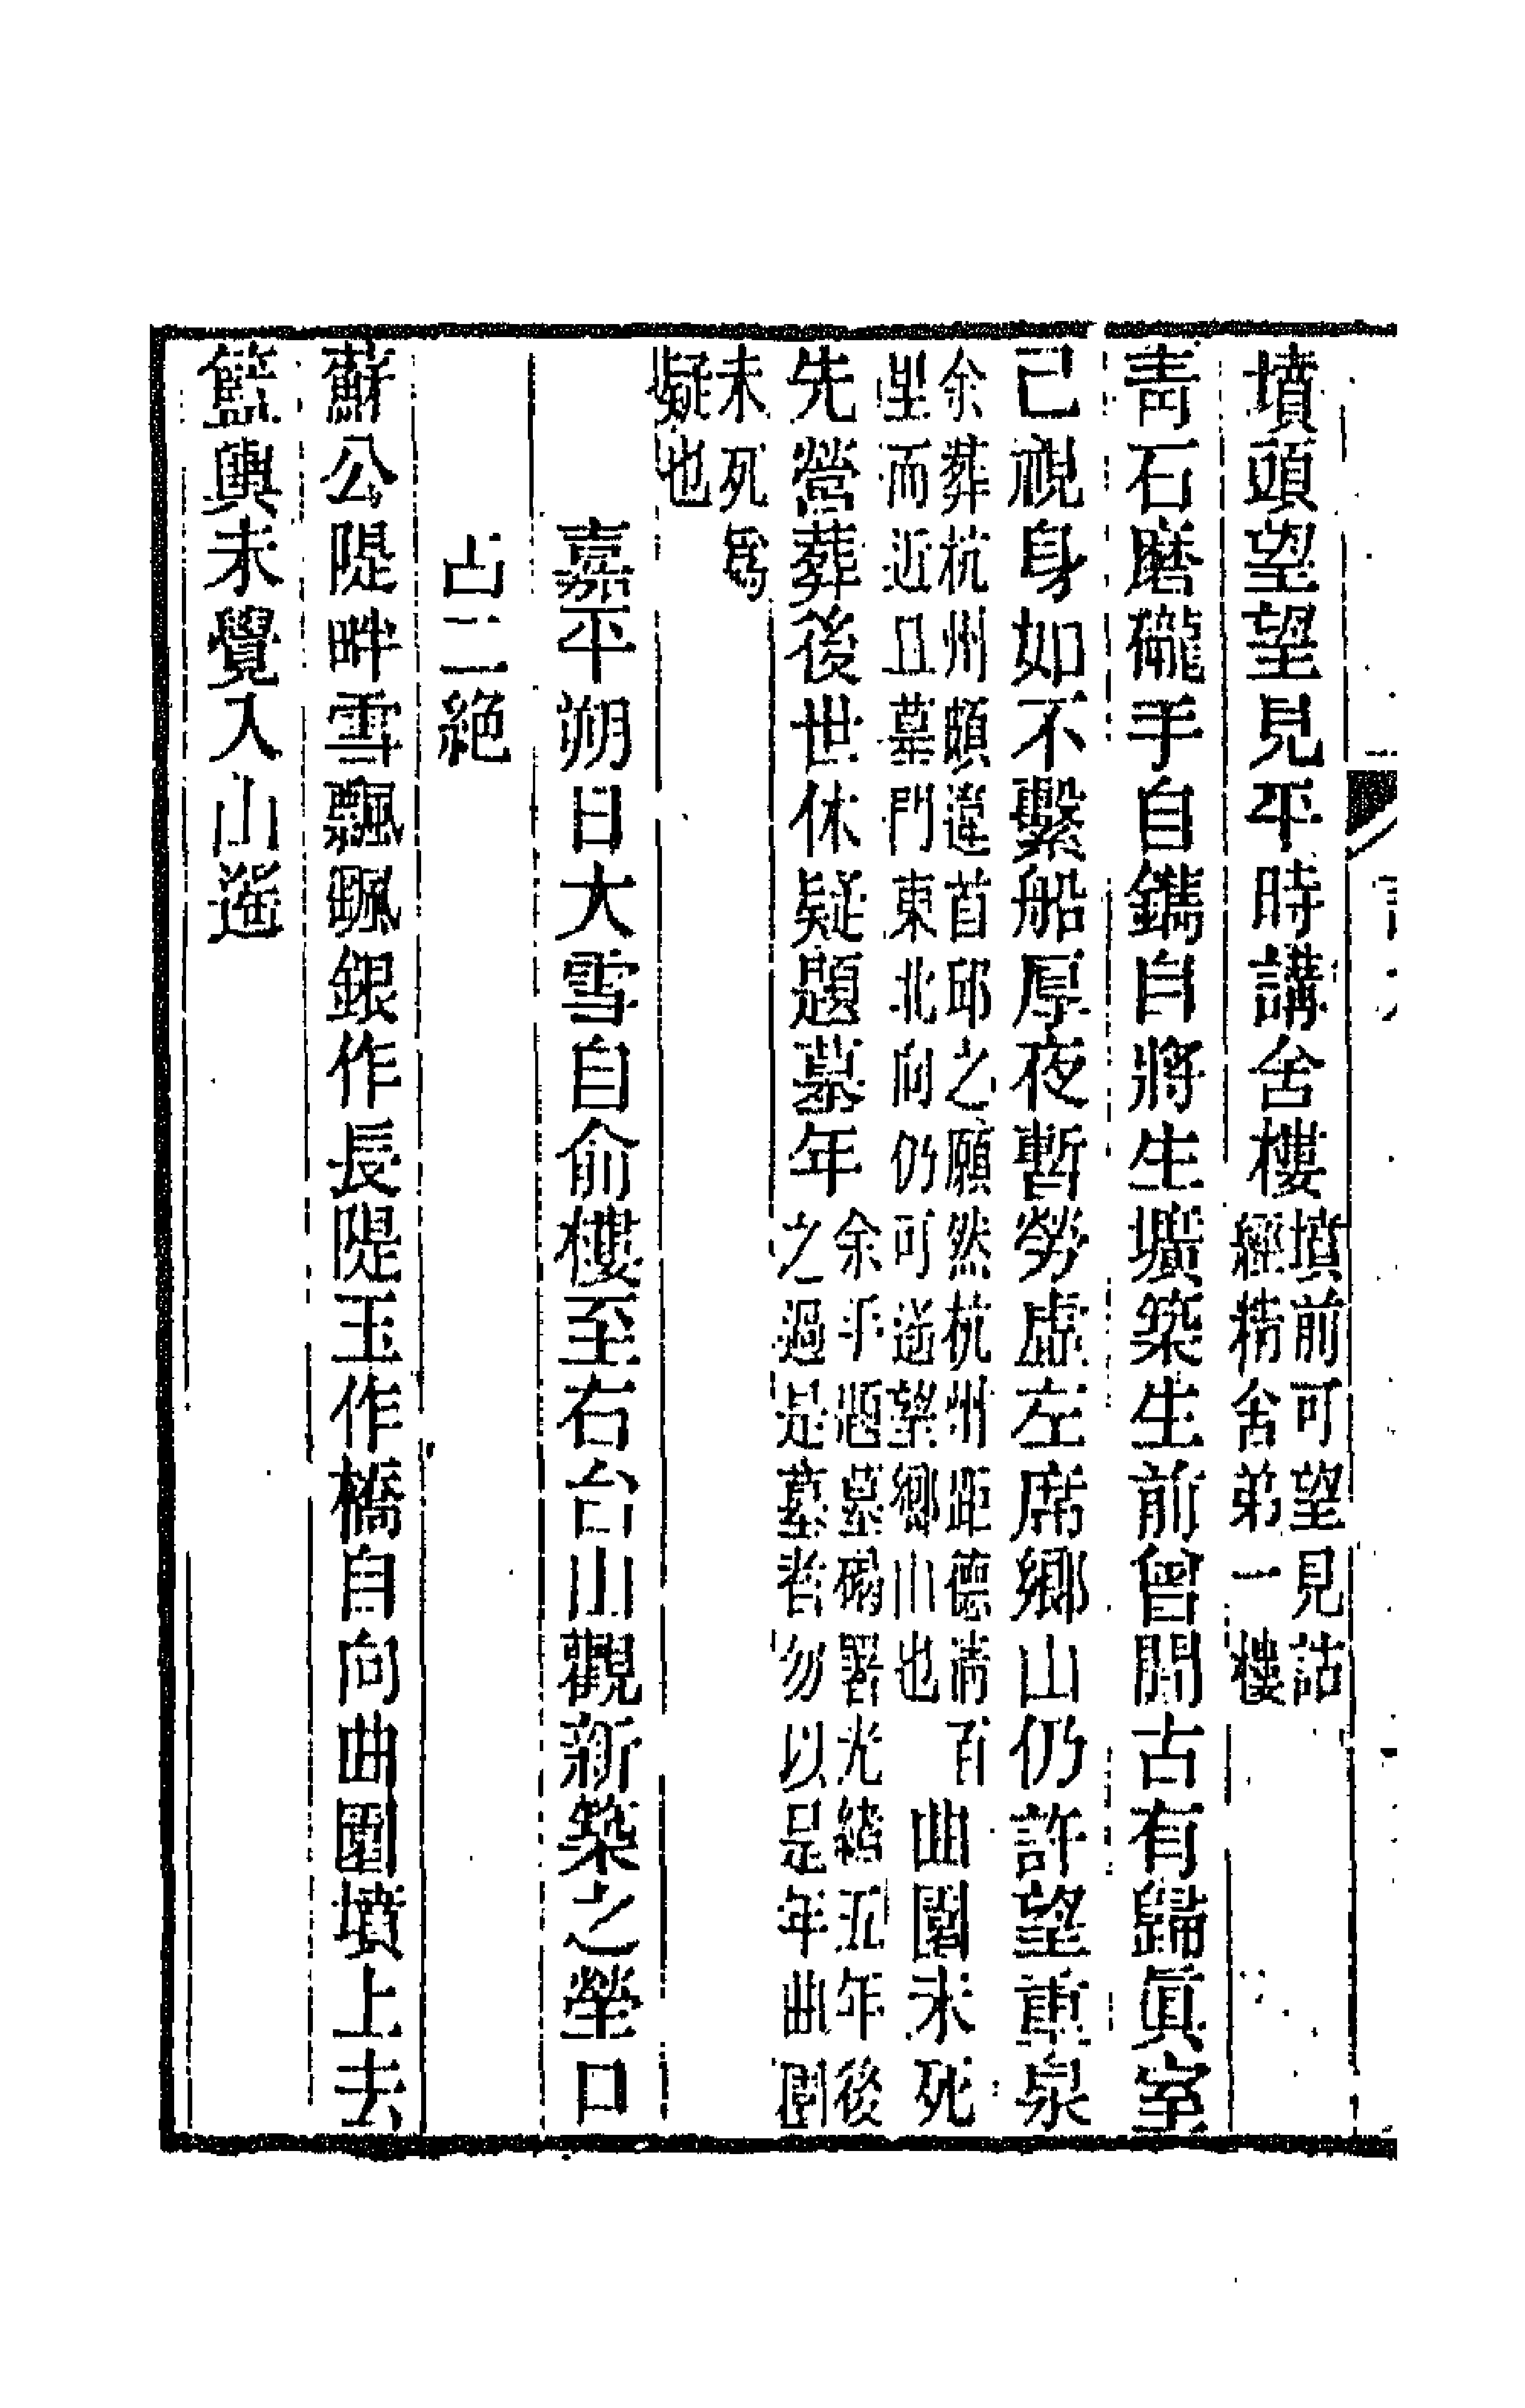 墳頭望望見平時講舍樓墳前可望見詁經精舍弟一樓
青石磨礲手自鐫自將生壙築生前曾聞古有歸眞室
已視身如不繫船厚夜暫勞虛左席鄉山仍許望重泉
余葬杭州頗違首邱之願然杭州距德清百里而近且墓門東北向仍可遥望鄉山也曲園未死
先營葬後世休疑題墓年余手題墓碣署光緒五年後之過是墓者勿以是年曲園
未死爲疑也
嘉平朔日大雪自俞樓至右台山觀新築之塋口
占二絶
蘇公隄畔雪飄颻銀作長隄玉作橋自向曲園墳上去
籃輿未覺入山遥